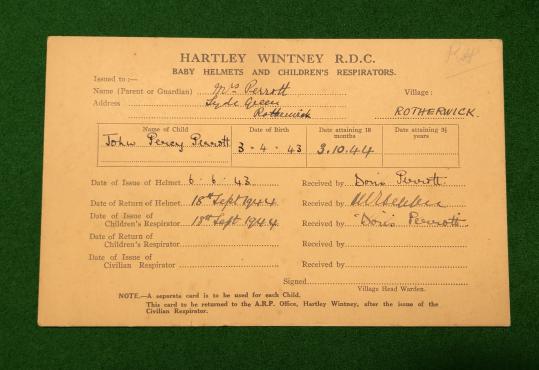 HARTLEY WINTNEY R.D.C.
BABY HELMETS AND CHILDREN'S RESPIRATORS.
Issued to :—
Name (Parent or Guardian) Mrs Perrott Village :
Address Lyde Green
Rotherwick ROTHERWICK.
Name of Child Date of Birth Date attaining 18 months Date attaining 3½ years
John Percy Perrott 3 . 4 . 43 3.10.44
Date of Issue of Helmet 6 . 6 . 43 Received by Doris Perrott.
Date of Return of Helmet 18th Sept 1944 Received by
Date of Issue of
Children's Respirator 18th Sept 1944 Received by Doris Perrott
Date of Return of
Children's Respirator Received by
Date of Issue of
Civilian Respirator Received by
Signed
Village Head Warden.
NOTE.—A separate card is to be used for each Child.
This card to be returned to the A.R.P. Office, Hartley Wintney, after the issue of the
Civilian Respirator.